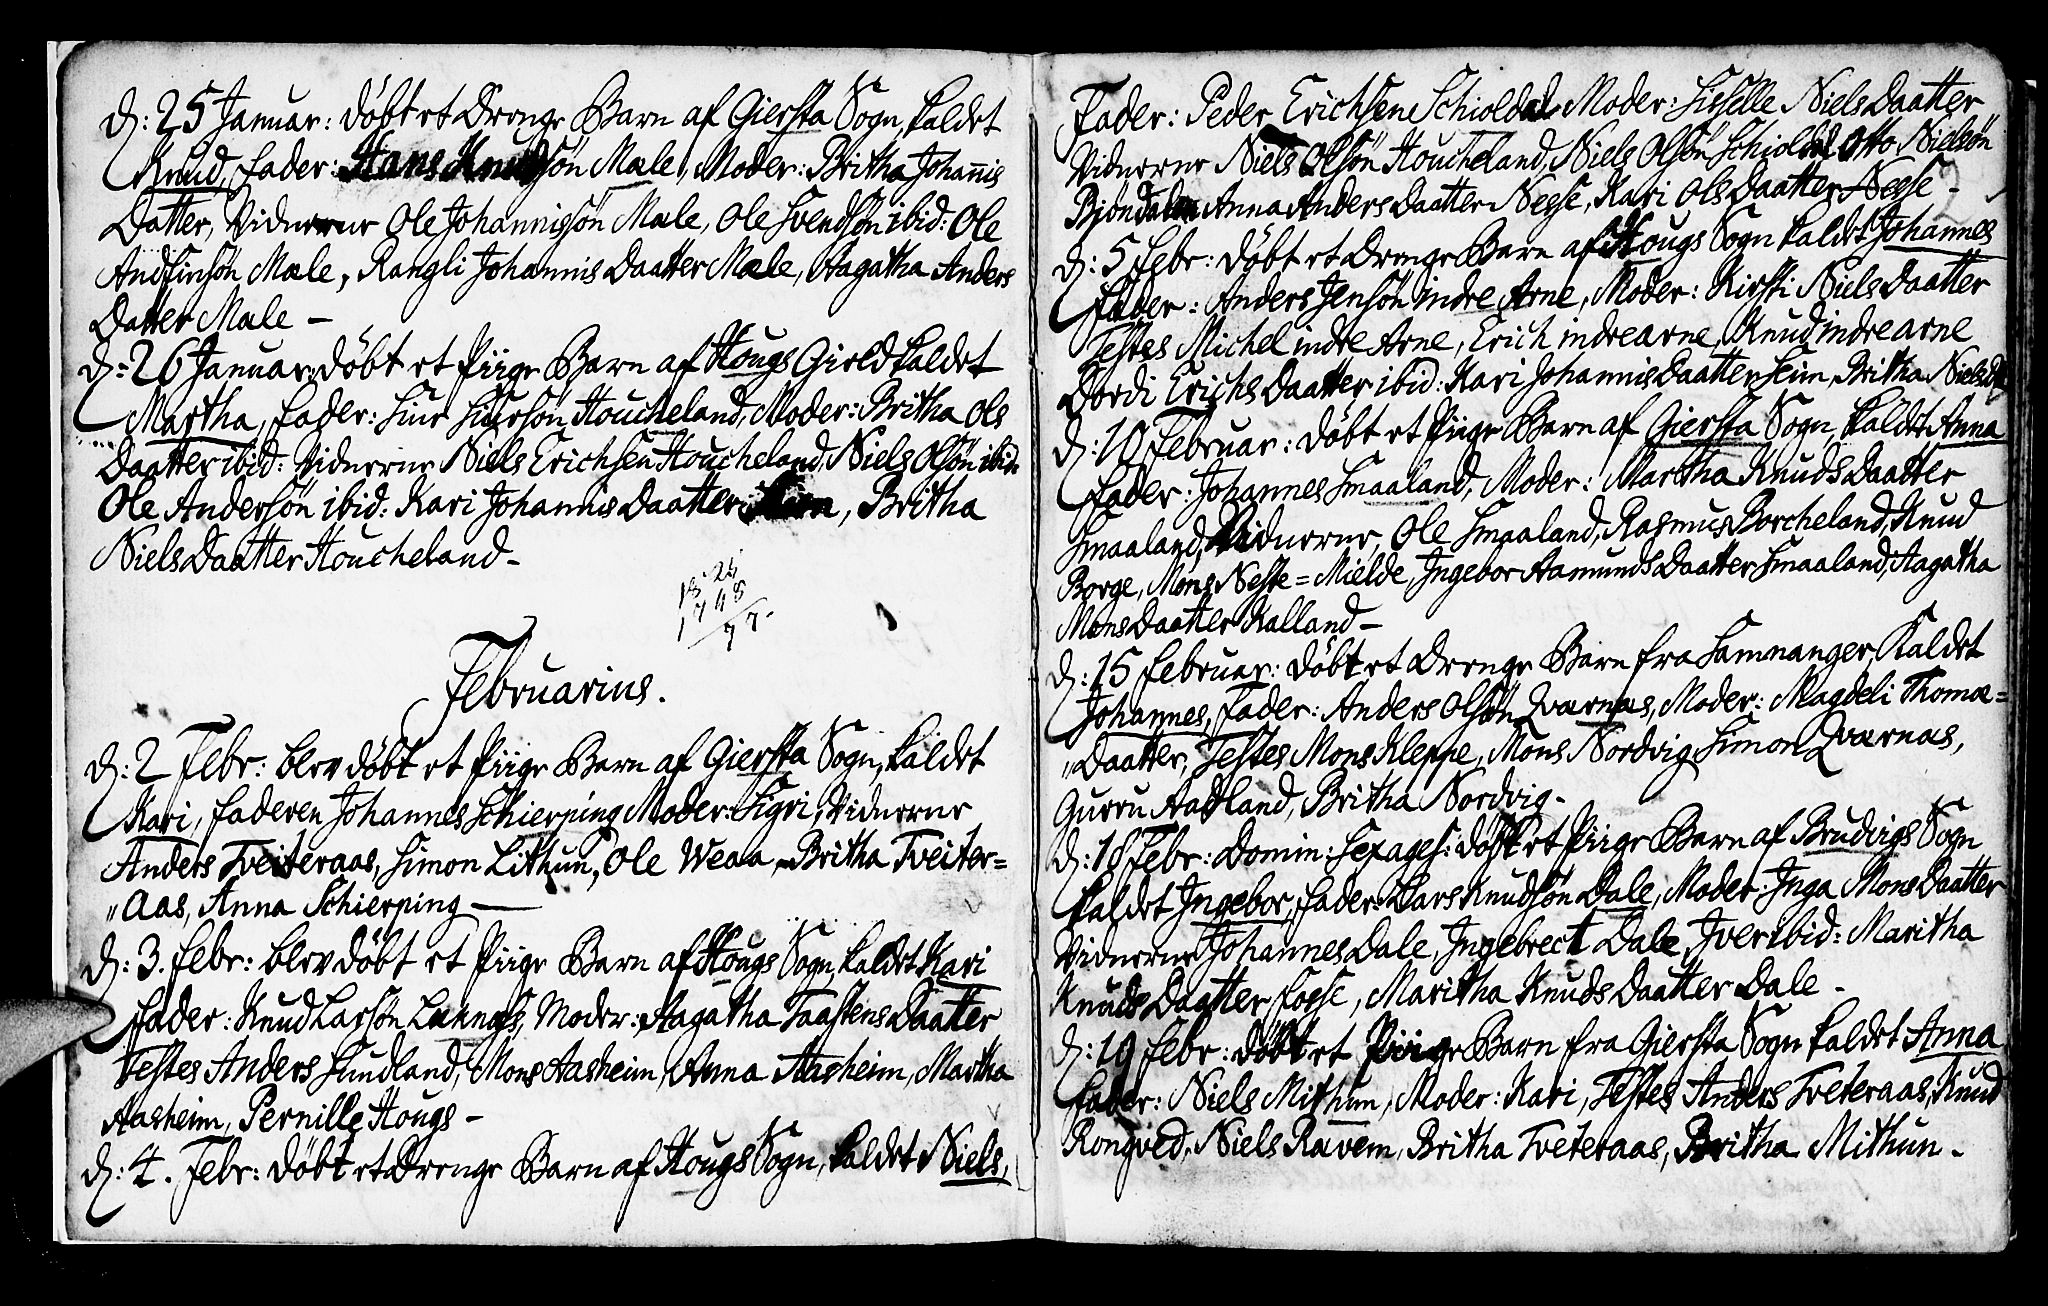 D: 25 Januar: döbt et Drenge Barn af Giersta Sogn, kaldet
Knud, Fader: Hans Knudsön Mæle, Moder: Britha Johannis
Datter, Vidnerne Ole Johannissön Mæle, Ole Svendsön ibid: Ole
Andfinsön Mæle, Rangli Johannis Daatter Mæle, Aagatha Anders
Datter Mæle –
D: 26 Januar: döbt et Piige Barn af Hougs Gield kaldet
Martha, Fader: Siur Siursön Houcheland, Moder: Britha Ols
Daatter ibid: Vidnerne Niels Erichsen Houcheland, Niels Olsön ibid
Ole Andersön ibid: Kari Johannis Daatter, Britha
Niels Daatter Houcheland –
1748
77.
Februarius.
D: 2 Febr: blev döbt et Piige Barn af Giersta Sogn, kaldet
Kari, Faderen Johannes Schierping Moder: Sigri, Vidnerne
Anders Tveiteraas, Simon Lithun, Ole Weaa, Britha Tveiter=
"aas, Anna Schierping –
D: 3. Febr: blev döbt et Piige Barn af Hougs Sogn, kaldet Kari
Fader: Knud Larsön, Moder: Aagatha Taastens Daatter
Testes Anders Sundland, Mons Aasheim, Anna Aasheim, Martha
Aasheim, Pernille Hougs –
D: 4. Febr: döbt et Drenge Barn af Hougs Sogn, kaldet Niels,
2
Fader: Peder Erichsen Schioldal Moder: Sisselle Niels Daatter
Vidnerne Niels Olsön Houcheland, Niels Olsön Schioldal Otto Nielsön
Biöndalen Anna Anders Daatter Nesse, Kari Ols Daatter Nesse –
D: 5 Febr: döbt et Drenge Barn af Hougs Sogn kaldet Johannes
Fader: Anders Jensön indre Arne, Moder: Kirsti Niels Daatter
Testes Michel indre Arne, Erich indre arne, Knud indre arne
Dordi Erichs Daatter ibid: Kari Johannis Daatter Seim, Britha Nielsd
D: 10 Februar: döbt et Piige Barn af Giersta Sogn, kaldet Anna
Fader: Johannes Smaaland, Moder: Martha Knuds Daatter
Smaaland, Vidnerne, Ole Smaaland, Rasmus Borcheland, Knud
Borge, Mons Neste=Mielde, Ingebor Aamunds Daatter Smaaland, Aagatha
Mons Daatter Kalland –
D: 15 Februar: döbt et Drenge Barn fra Samnanger Kaldet
Johannes, Fader: Anders Olsön Qværnæs, Moder: Magdeli Thomæ=
"Daatter, Testes Mons Kleppe, Mons Nordvig Simon Qværnæs,
Gurru Aadland, Britha Nordvig –
D: 18 Febr: Domin: Sexages: döbt et Piige Barn af Brudvigs Sogn
kaldet Ingebor, Fader: Lars Knudsön Dale, Moder: Inga Mons Daatter
Vidnerne Johannes Dale, Ingebrect Dale, Iver ibid: Maritha
Knuds Daatter Fosse, Maritha Knuds Daatter Dale –
D: 19 Febr: döbt et Piige Barn fra Giersta Sogn kaldet Anna
Fader: Niels Mithun, Moder: Kari, Testes Anders Tveteraas, Knud
Rongved, Niels Rævem, Britha Tveteraas, Britha Mithun –